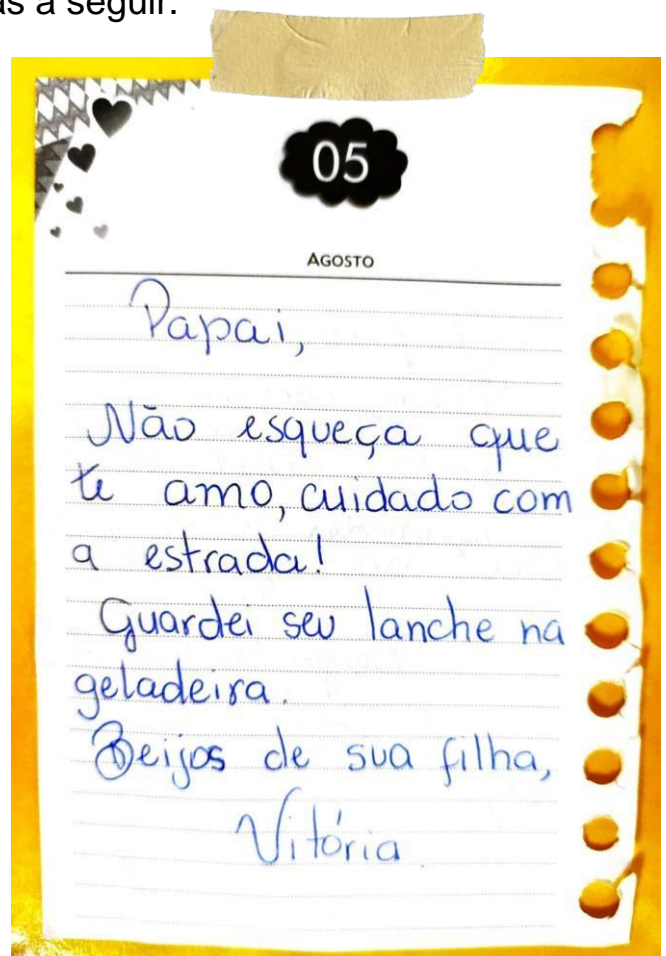 as a seguir.
05
AGOSTO
Papai,
Não esqueça que
te amo, cuidado com
a estrada!
Guardei seu lanche na
geladeira.
Beijos de sua filha,
Vitória